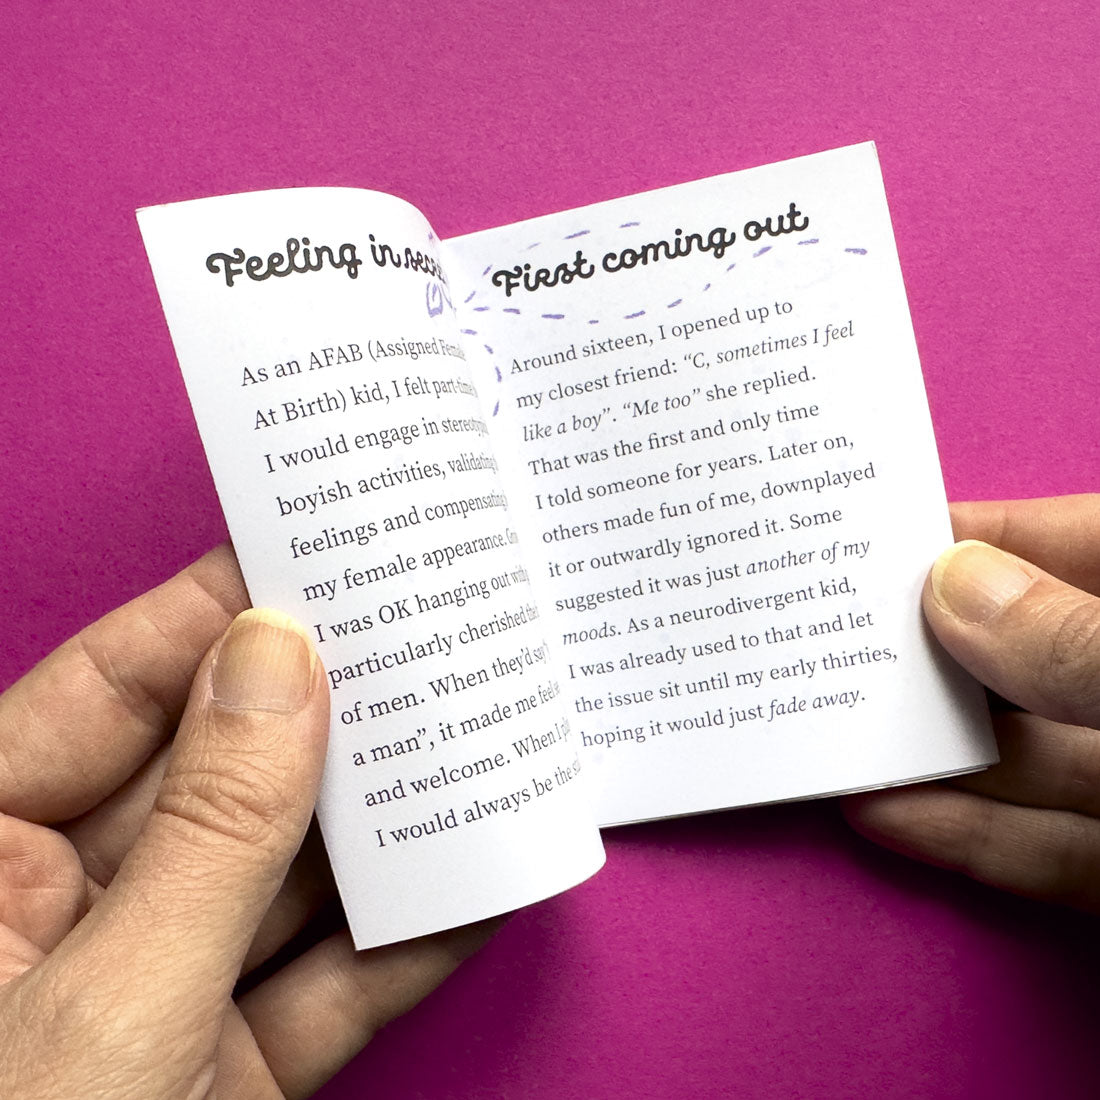 Feeling in
As an AFAB (Assigned Female
At Birth) kid, I felt part-time
I would engage in
boyish activities, validating
feelings and compensating
my female appearance.
I was OK hanging out with
particularly cherished
of men. When they'd say
a man”, it made me feel
and welcome. When I
I would always be the
First coming out
Around sixteen, I opened up to
my closest friend: “C, sometimes I feel
like a boy”. “Me too” she replied.
That was the first and only time
I told someone for years. Later on,
others made fun of me, downplayed
it or outwardly ignored it. Some
suggested it was just another of my
moods. As a neurodivergent kid,
I was already used to that and let
the issue sit until my early thirties,
hoping it would just fade away.